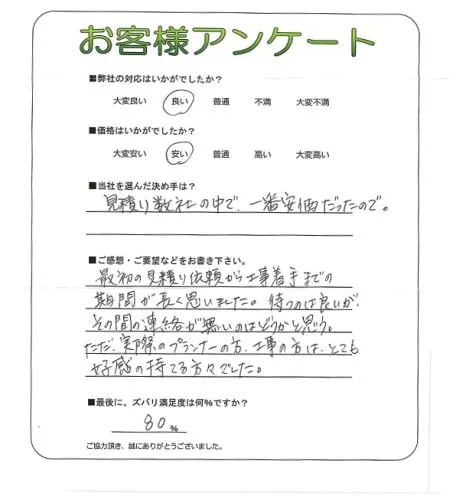 お客様アンケート
■弊社の対応はいかがでしたか？
大変良い 良い 普通 不満 大変不満
■価格はいかがでしたか？
大変安い 安い 普通 高い 大変高い
■当社を選んだ決め手は？
見積り数社の中で、一番安価だったので。
■ご感想・ご要望などをお書き下さい。
最初の見積り依頼から工事着手までの
期間が長く思いました。待つのは良いが、
その間の連絡が無いのはどうかと思う。
ただ、実際のプランナーの方、工事の方は、とても
好感の持てる方々でした。
■最後に、ズバリ満足度は何%ですか？
80 %
ご協力頂き、誠にありがとうございました。